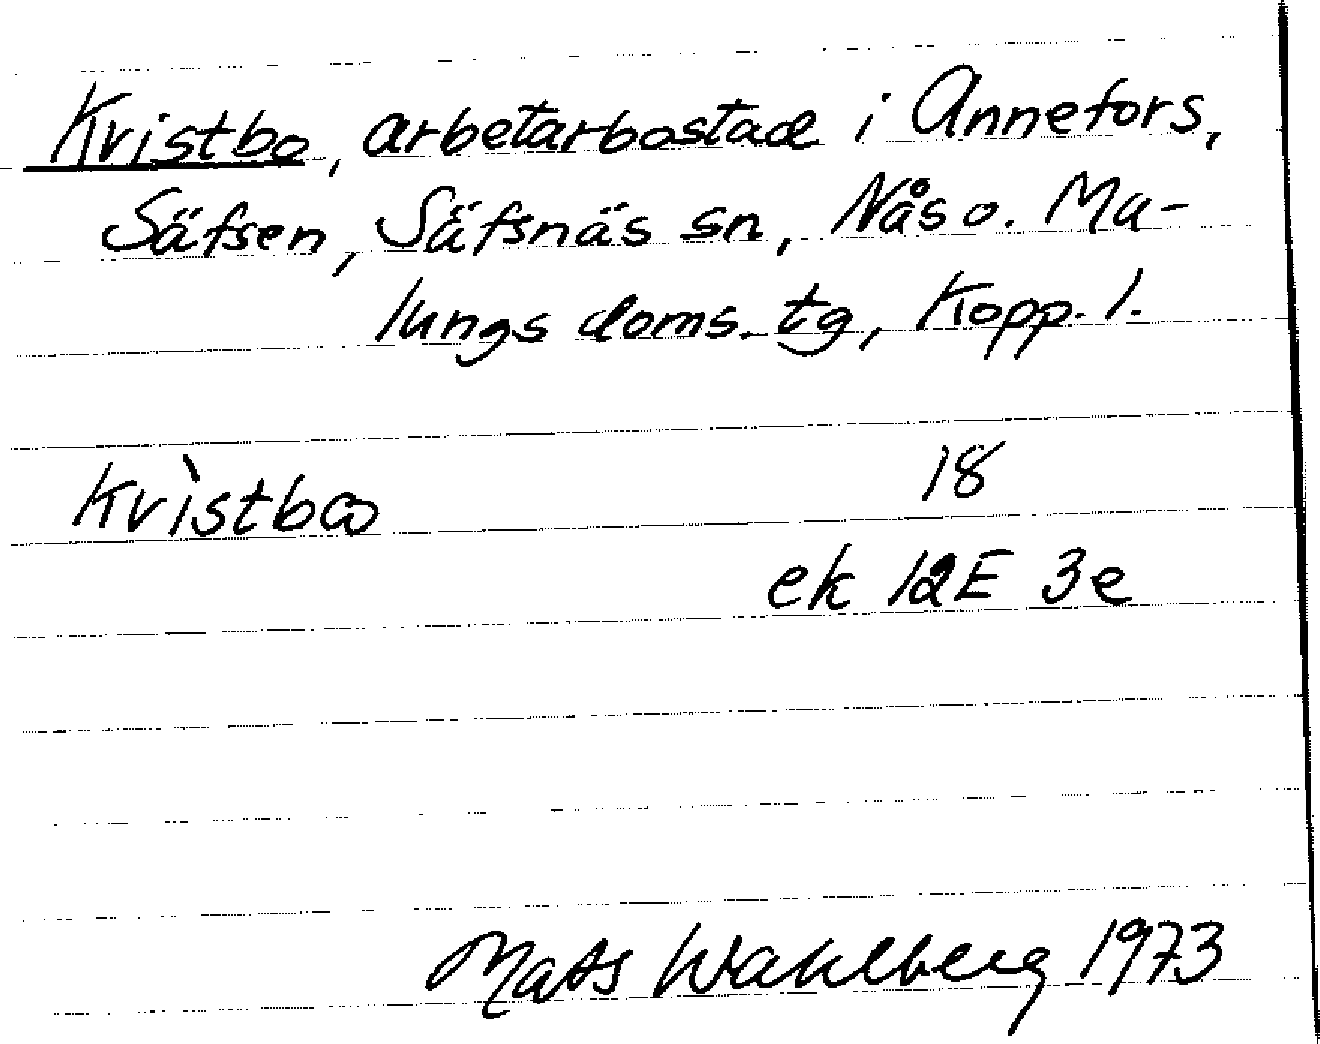 Kristbo, arbetarbostad i Annefors,
Säfsen, Säfsnäs sn, Nås o. Ma-
lungs doms. tg, Kopp. l.
Krìstbω 18
ek 12E 3e
Mats Wahlberg 1973